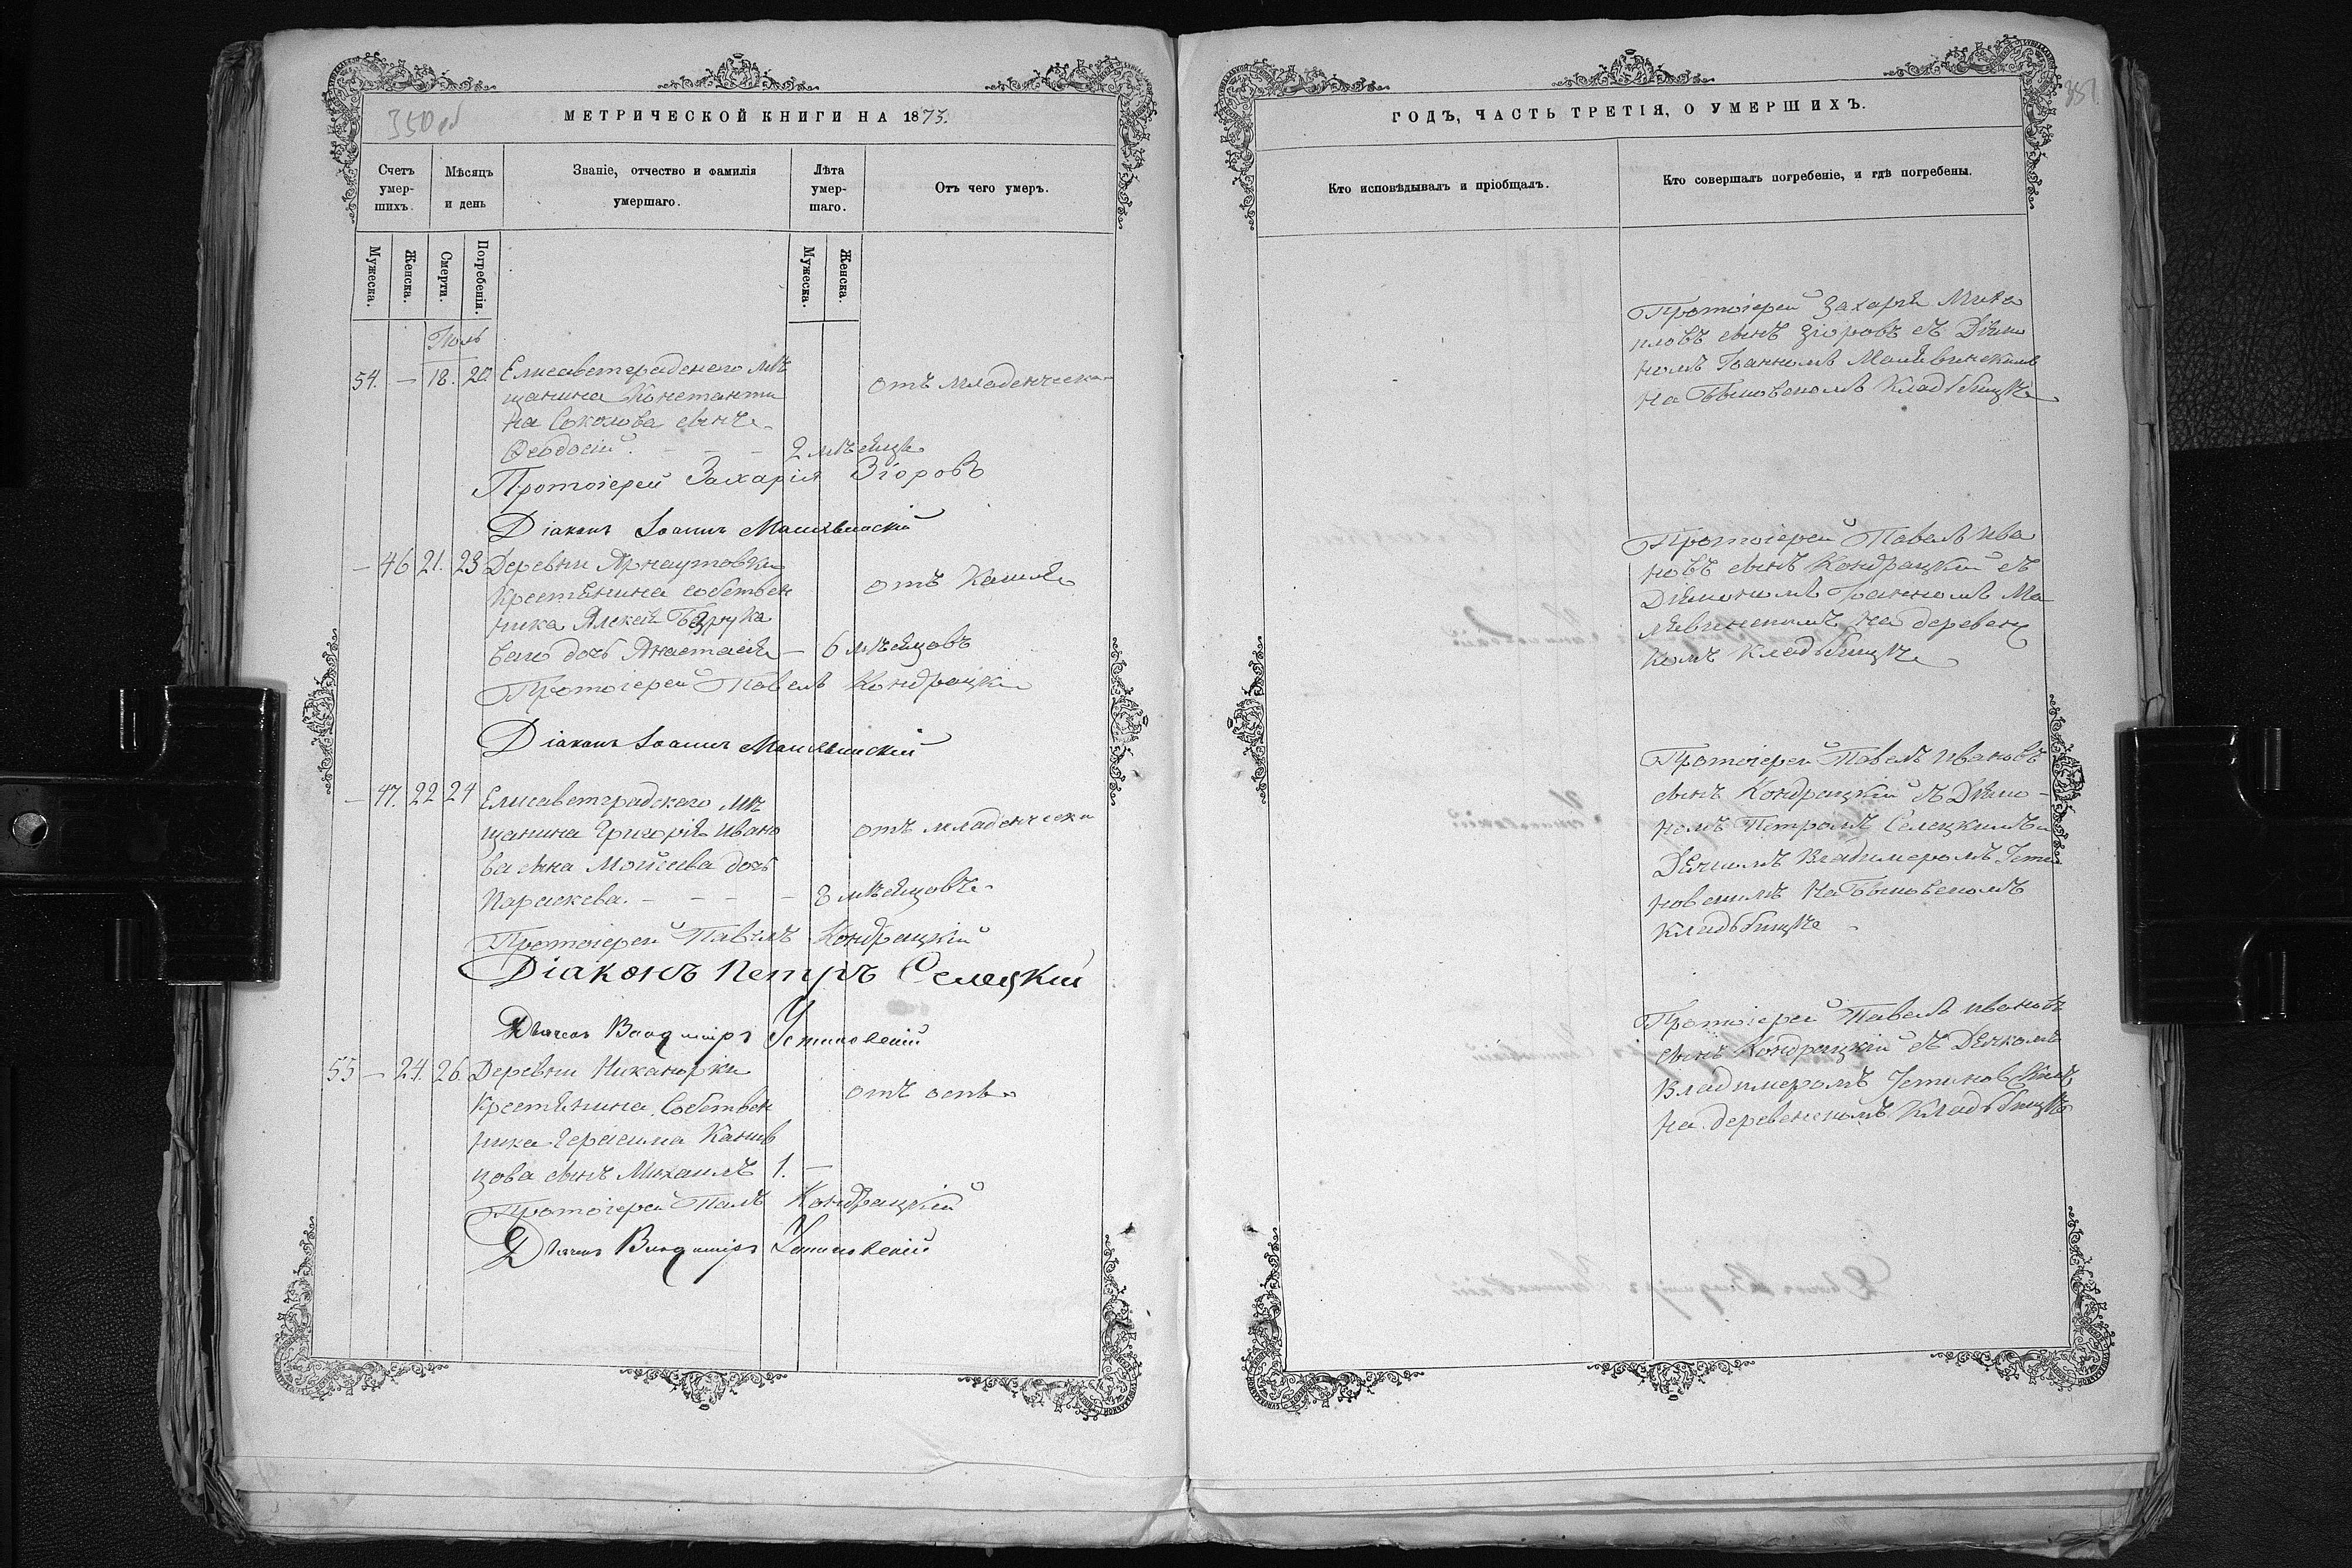 350 об
МЕТРИЧЕСКОЙ КНИГИ НА 1873.
Счетъ умер-шихъ.
Мѣсяцъ и день
Званіе, отчество и фамилія умершаго.
Лѣта умер-шаго.
Отъ чего умеръ.
Мужеска.
Женска.
Смерти.
Погребенія.
Мужеска.
Женска.
Іюль
54. — 18. 20. Елисаветградскаго мѣ
щанина Константи
на Соколова сынъ
Ѳеодосій. — — — 2 мѣсяца
отъ младенческа
Протоіерей Захарія Зіоровъ
Діаконъ Іоаннъ Малявинскій
— 46 21. 23 Деревни Арнаутовки
крестьянина собствен
ника Алексѣя
дочь Анастасія — 6 мѣсяцовъ
отъ кашля
Протоіерей Павелъ Кондрацкій
Діаконъ Іоаннъ Малявинскій
— 47. 22 24 Елисаветградскаго мѣ
щанина Григорія Ивано
ва сына Мойсеева дочь
Параскева. — — — — 8 мѣсяцовъ
отъ младенческа
Протоіерей Павелъ Кондрацкій
Діаконъ Петръ Селецкій
Дьячокъ Владимиръ Устиновскій
55 — 24. 26. Деревни Никанорки
крестьянина собствен
ника Герасима Канив
цова сынъ Михаилъ 1. —
отъ оспы
Протоіерей Павелъ Кондрацкій
Дьячокъ Владимиръ Устиновскій
351
ГОДЪ, ЧАСТЬ ТРЕТІЯ, О УМЕРШИХЪ.
Кто исповѣдывалъ и пріобщалъ.
Кто совершалъ погребеніе, и гдѣ погребены.
Протоіерей Захарія Миха
иловъ сынъ Зіоровъ съ Діако
номъ Іоанномъ Малявинскимъ
на Быковскомъ кладбищѣ
Протоіерей Павелъ Ива
новъ сынъ Кондрацкій съ
Діякономъ Іоанномъ Ма
лявинскимъ на деревенс
комъ кладбищѣ
Протоіерей Павелъ Ивановъ
сынъ Кондрацкій съ Діако-
номъ Петромъ Селецкимъ и
Дьячкомъ Владимеромъ Усти
новскимъ на Быковскомъ
кладбищѣ
Протоіерей Павелъ Ивановъ
сынъ Кондрацкій съ Дьячкомъ
Владимеромъ Устиновскимъ
на деревенскомъ кладбищѣ